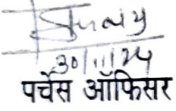 30/11/24
पर्चेस ऑफिसर